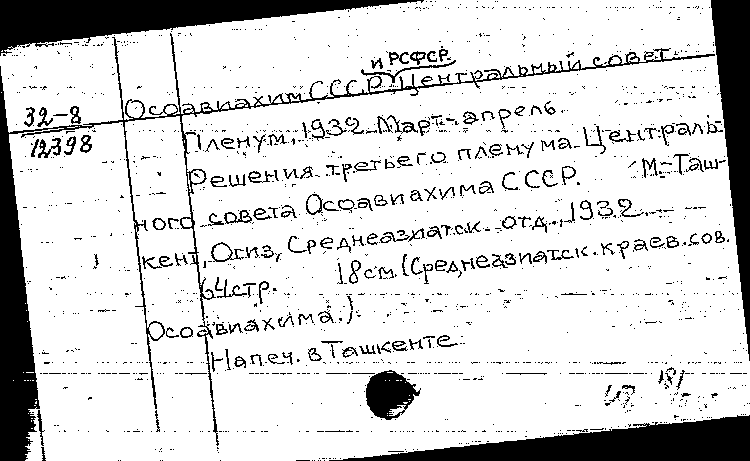 и РСФСР
32-8
Осоавиахим СССР. Центральный совет.
12398
Пленум, 1932. Март-апрель.
Решения третьего пленума Централь-
ного совета Осоавиахима СССР. М.-Таш-
кент, Огиз, Среднеазиатск. отд., 1932.
64стр. 18см. (Среднеазиатск. краев. сов.
Осоавиахима.).
Напеч. в Ташкенте.
181